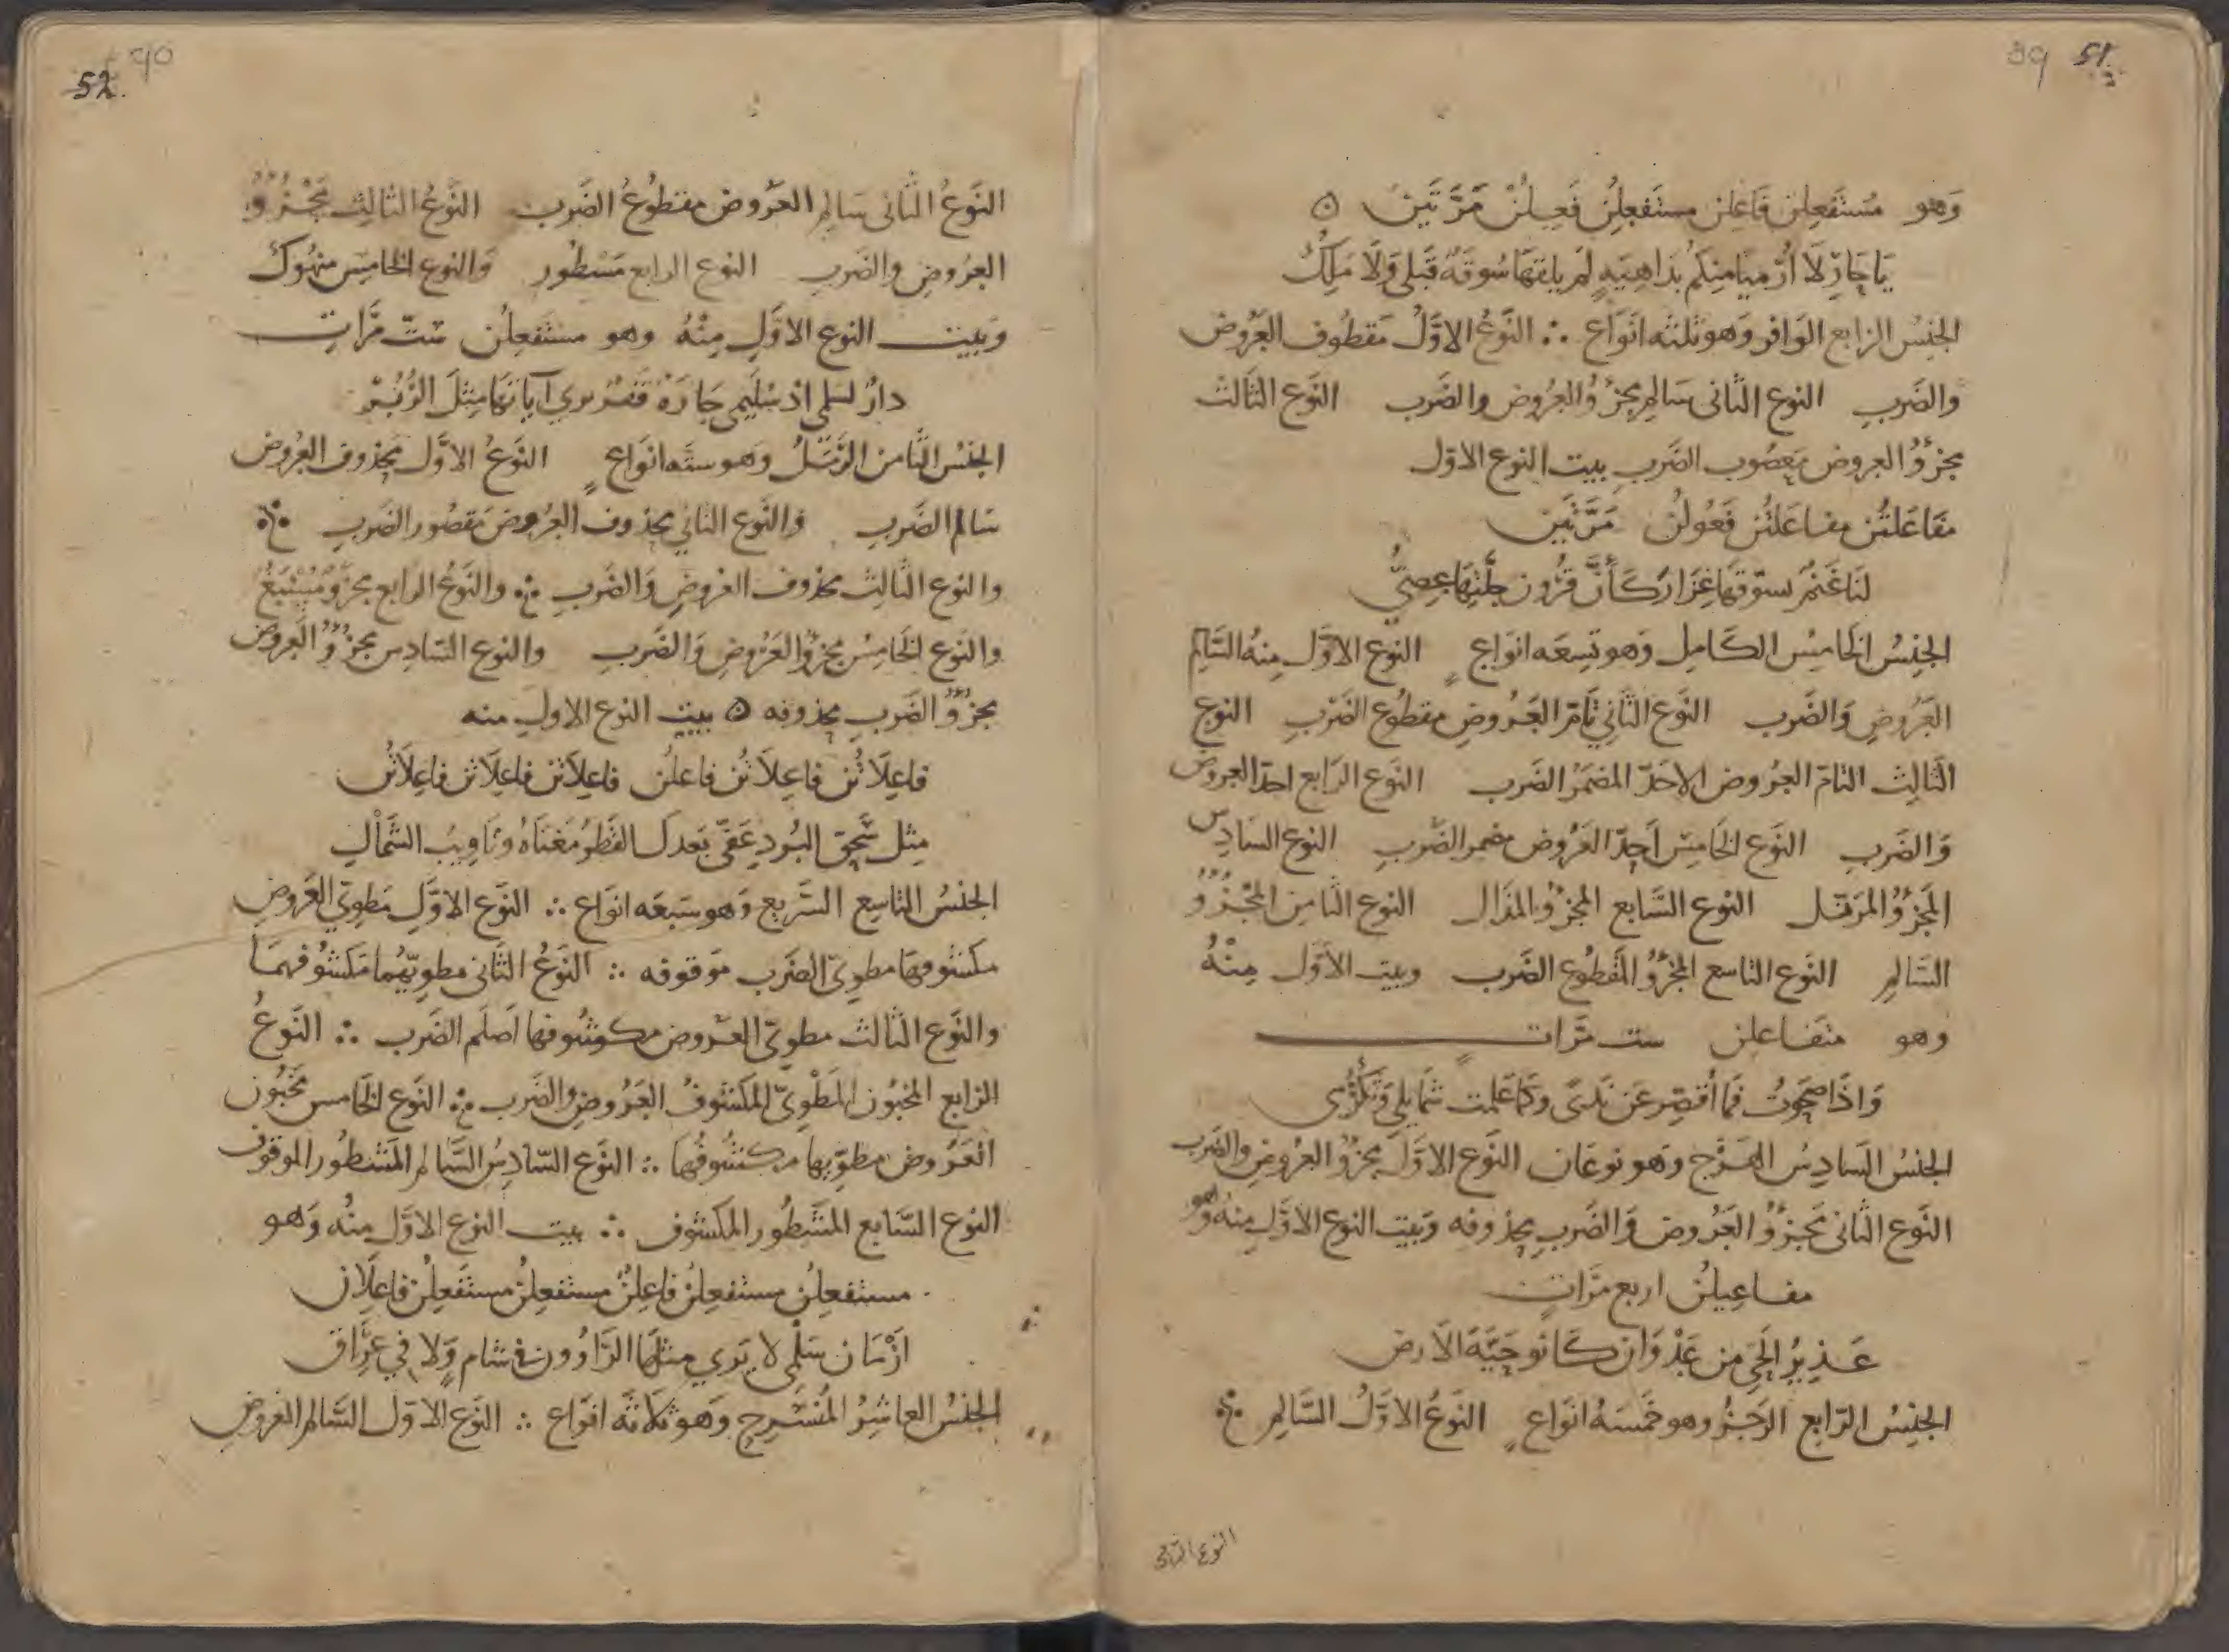 39 51
وَهو مُستَفعِلن فَاعِلن مستَفعِلُن فَعِلُنْ مَرَّتَين ٥
يَا حَارِ لَا أُرْمَيًا مِنكُم بدَاهِيَهٍ لَم يلقَهَا سُوقَةٌ قَبلى وَلَا مَلِكُ
الجنِسُ الرابع الوَافر وَهو ثلثه انَوَاع ∴ النَّوعُ الاوَّلُ مَقطُوف العَرُوض
والضَربِ النوع الثانى سَالم مجزؤُ العرُوض والضَرب النَوع الثالث
مجزؤُ العروض مَعصُوب الضَربِ بيت النوع الاول
مفَاعَلتُن مفاعَلتُن فَعُولُن مَرَّتَين
لنَا غَنمٌ نسوّقهَا غِزَارٌ كَأَنَّ قرُون جلّتِهَا عِصِىُّ
الجنِسُ الخَامِسُ الكَامِل وَهو تسِعَه انوَاعٍ النوع الاوَّل مِنهُ السَّالِم
العَرُوضِ وَالضَرب النَوع الثَّانِي تَامّ العَرُوضِ مقطوع الضَرْبِ النوع
الثَالِث التامّ العرُوض الاحَذّ المضمَرُ الضَرب النَوع الرَابع احذّ العروض
وَالضَربِ النَوع الخَامِسَ اَحذّ العَرُوض مضمر الضَربِ النوع السَادِس
المجَزؤُ المرَفّل النوع السَّابع المجزؤُ المذَال النوع الثَامن المجْزؤُ
السَّالمِ النَوع التاسع المجزؤُ المَقطُوع الضَرب وبيَت الأوَّل مِنْهُ
وهو متفاعلن ست مَرَّاتٍ
وَاذَا صَحَوتُ فَمَا أُقصِّر عَن نَدًى وكَمَا عَلمت شمَايلي وَتَكَرُّمى
الجنِسُ السَادِسُ الهَزَج وَهو نوعَان النَوع الاوَّل مجزؤُ العَرُوضِ والضَرب
النَوع الثَّانى مَجزؤُ العَرُوض وَالضَربِ محذوفه وَبيت النوع الاوَّلِ مِنهُ وَهو
مفاعِيلُن اربع مَرَّاتٍ
عَذيرُ الحَيِ من عَدْوَانِ كَانُو حَيَّةَ الاَرض
الجنِسُ الرّابع الرَجَزُ وهو خَمسَهُ انوَاعٍ النوَعُ الاوَّلُ السَّالِم
النوع الثانى
52 40
النَوعُ الثَّانى سَالم العَرُوض مقطُوعُ الضَرب النَوعُ الثالِث مَجْزُؤُ
العرُوضِ والضَربِ النوع الرابع مَشطُور وَالنوع الخامِس منهُوكٌ
وَبَيت النوع الاوَّلِ مِنْهُ وهو مستَفعِلُن ستّ مَرَّاتٍ
دارٌ لسَلمى اذ سُلَيمى جَارَةٌ قَفْرٌ تَرى آيَاتهَا مِثلَ الزُّبُرْ
الجنسُ الثَّامن الرَّمَلُ وَهو ستَّه انوَاعٍ النَوعُ الاوَّل مَحذوف العَرُوض
سَالم الضَربِ وَالنَوع الثاني محذوف العَرُوض مَقصُور الضَربِ
والنوع الثَالِث محذوف العَروضِ وَالضَربِ ∴ والنَوعُ الرابع مجزؤٌ مُسْبَغٌ
والنوع الخَامِسُ مجزؤُ العَرُوضِ وَالضَربِ والنوع السَادِس مجزؤُ العَروض
مجزؤُ الضَربِ محذوفه ٥ بييت النوع الاولِ منه
فاعِلَاتُن فاعِلَاتُن فاعلُن فاعِلَاتن فاعِلَاتن فاعِلَاتُن
مِثل سَحقِ البُردِ عَفَّى بَعدكَ القَطرُ مَغنَاهُ وتَاوِيبُ الشَّمَالِ
الجنسُ التاسِع السَّرِيع وَهو سَبعَه انوَاع ∴ النوَع الاوَّل مَطويّ العَروض
مكشُوفهَا مطوِىّ الضَرب مَوقوفه ∴ النوعُ الثَّانى مطويّهُما مَكشُوفهمَا
والنَوع الثالث مطوىّ العَروض مكوشُوفها اَصلَم الضَرب ∴ النَوعُ
الرَابع المخبُون المَطْوِىّ المكشُوفُ العَرُوضِ والضَرب ∴ النَوع الخَامس مَخبُون
العَرُوض مطوِّيها مَكشُوفُهَا ∴ النَوع السّادِسُ السَّالم المَشطُور الموقوف
النوع السَّابع المشَطُور المكشوف ∴ بيت النوع الاوَّل مِنُه وَهو
مستفعلِن مستفعِلنُ فاعِلنُ مستفعِلنُ مستَفعِلُن فاعِلَان
ازْمَان سَلْمى لا يَرَي مثلَها الرَّاوُون فى شَامٍ وَلا فِي عِرَاق
الجنسُ العاشِرُ المُنسَرِح وَهو ثلَاثَه انوَاع ∴ النَوع الاوّل السَّالم العَروضِ